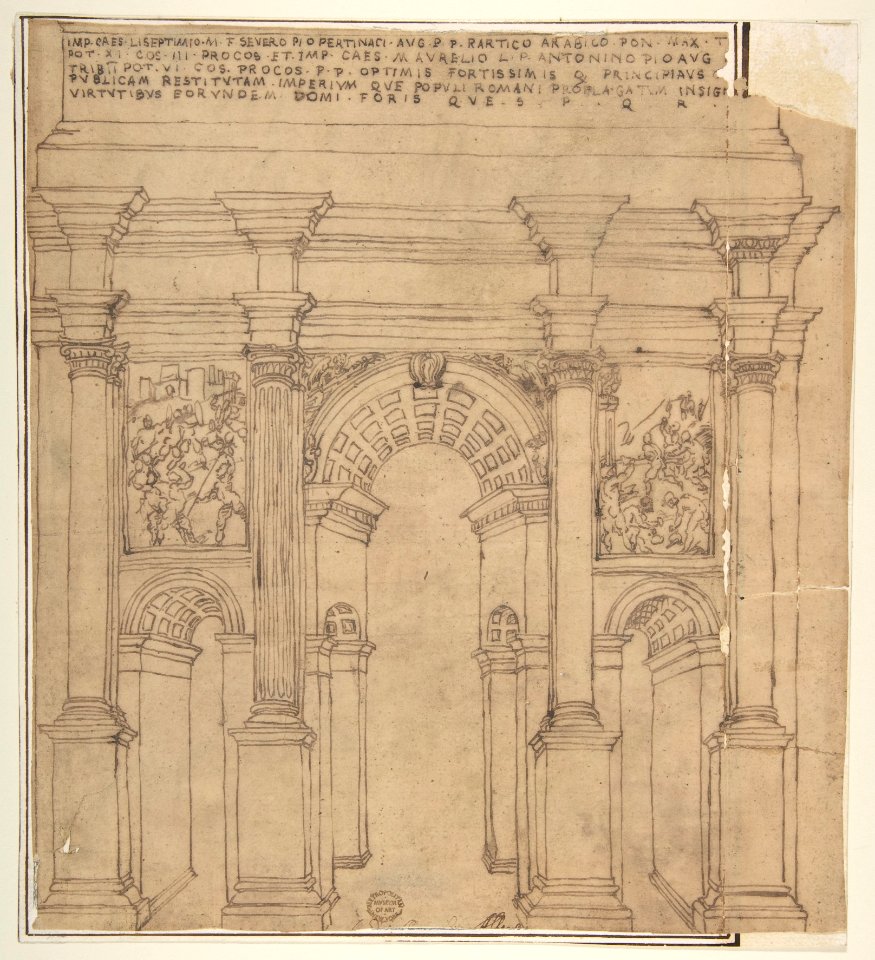 IMP·CAES·LISEPTIMIO·M·F·SEVERO PIO PERTINACI·AVG·P P·RARTICO ARABICO·PON·MAX·T
POT·XI·COS·III·PROCOS·ET·IMP·CAES·M AVRELIO L·P·ANTONINO PIO AVG
TRIB POT·VI·COS·PROCOS·P·P·OPTIMIS FORTISSIMIS Q PRINCIPIAVS
PVBLICAM RESTITVTAM·IMPERIVM QVE POPVLI ROMANI PROPLAGATVM INSIGN
VIRTVTIBVS EORVNDEM DOMI·FORIS QVE·S·P·Q R
METROPOLITAN
MVSEVM
OF ART